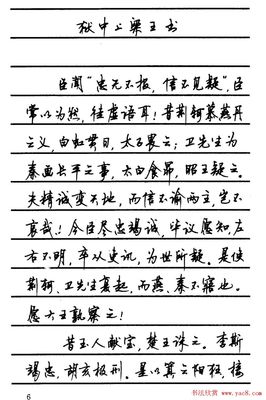 狱中上梁王书
臣闻“忠无不报，信不见疑”，臣
常以为然，徒虚语耳！昔荆轲慕燕丹
之义，白虹贯日，太子畏之；卫先生为
秦画长平之事，太白食昴，昭王疑之。
夫精诚变天地，而信不谕两主，岂不
哀哉！今臣尽忠竭诚，毕议愿知，左
右不明，卒从吏讯，为世所疑。是使
荆轲、卫先生复起，而燕、秦不寤也。
愿大王孰察之！
昔玉人献宝，楚王诛之。李斯
竭忠，胡亥极刑。是以箕子阳狂，接
6
书法欣赏
www.yac8.com